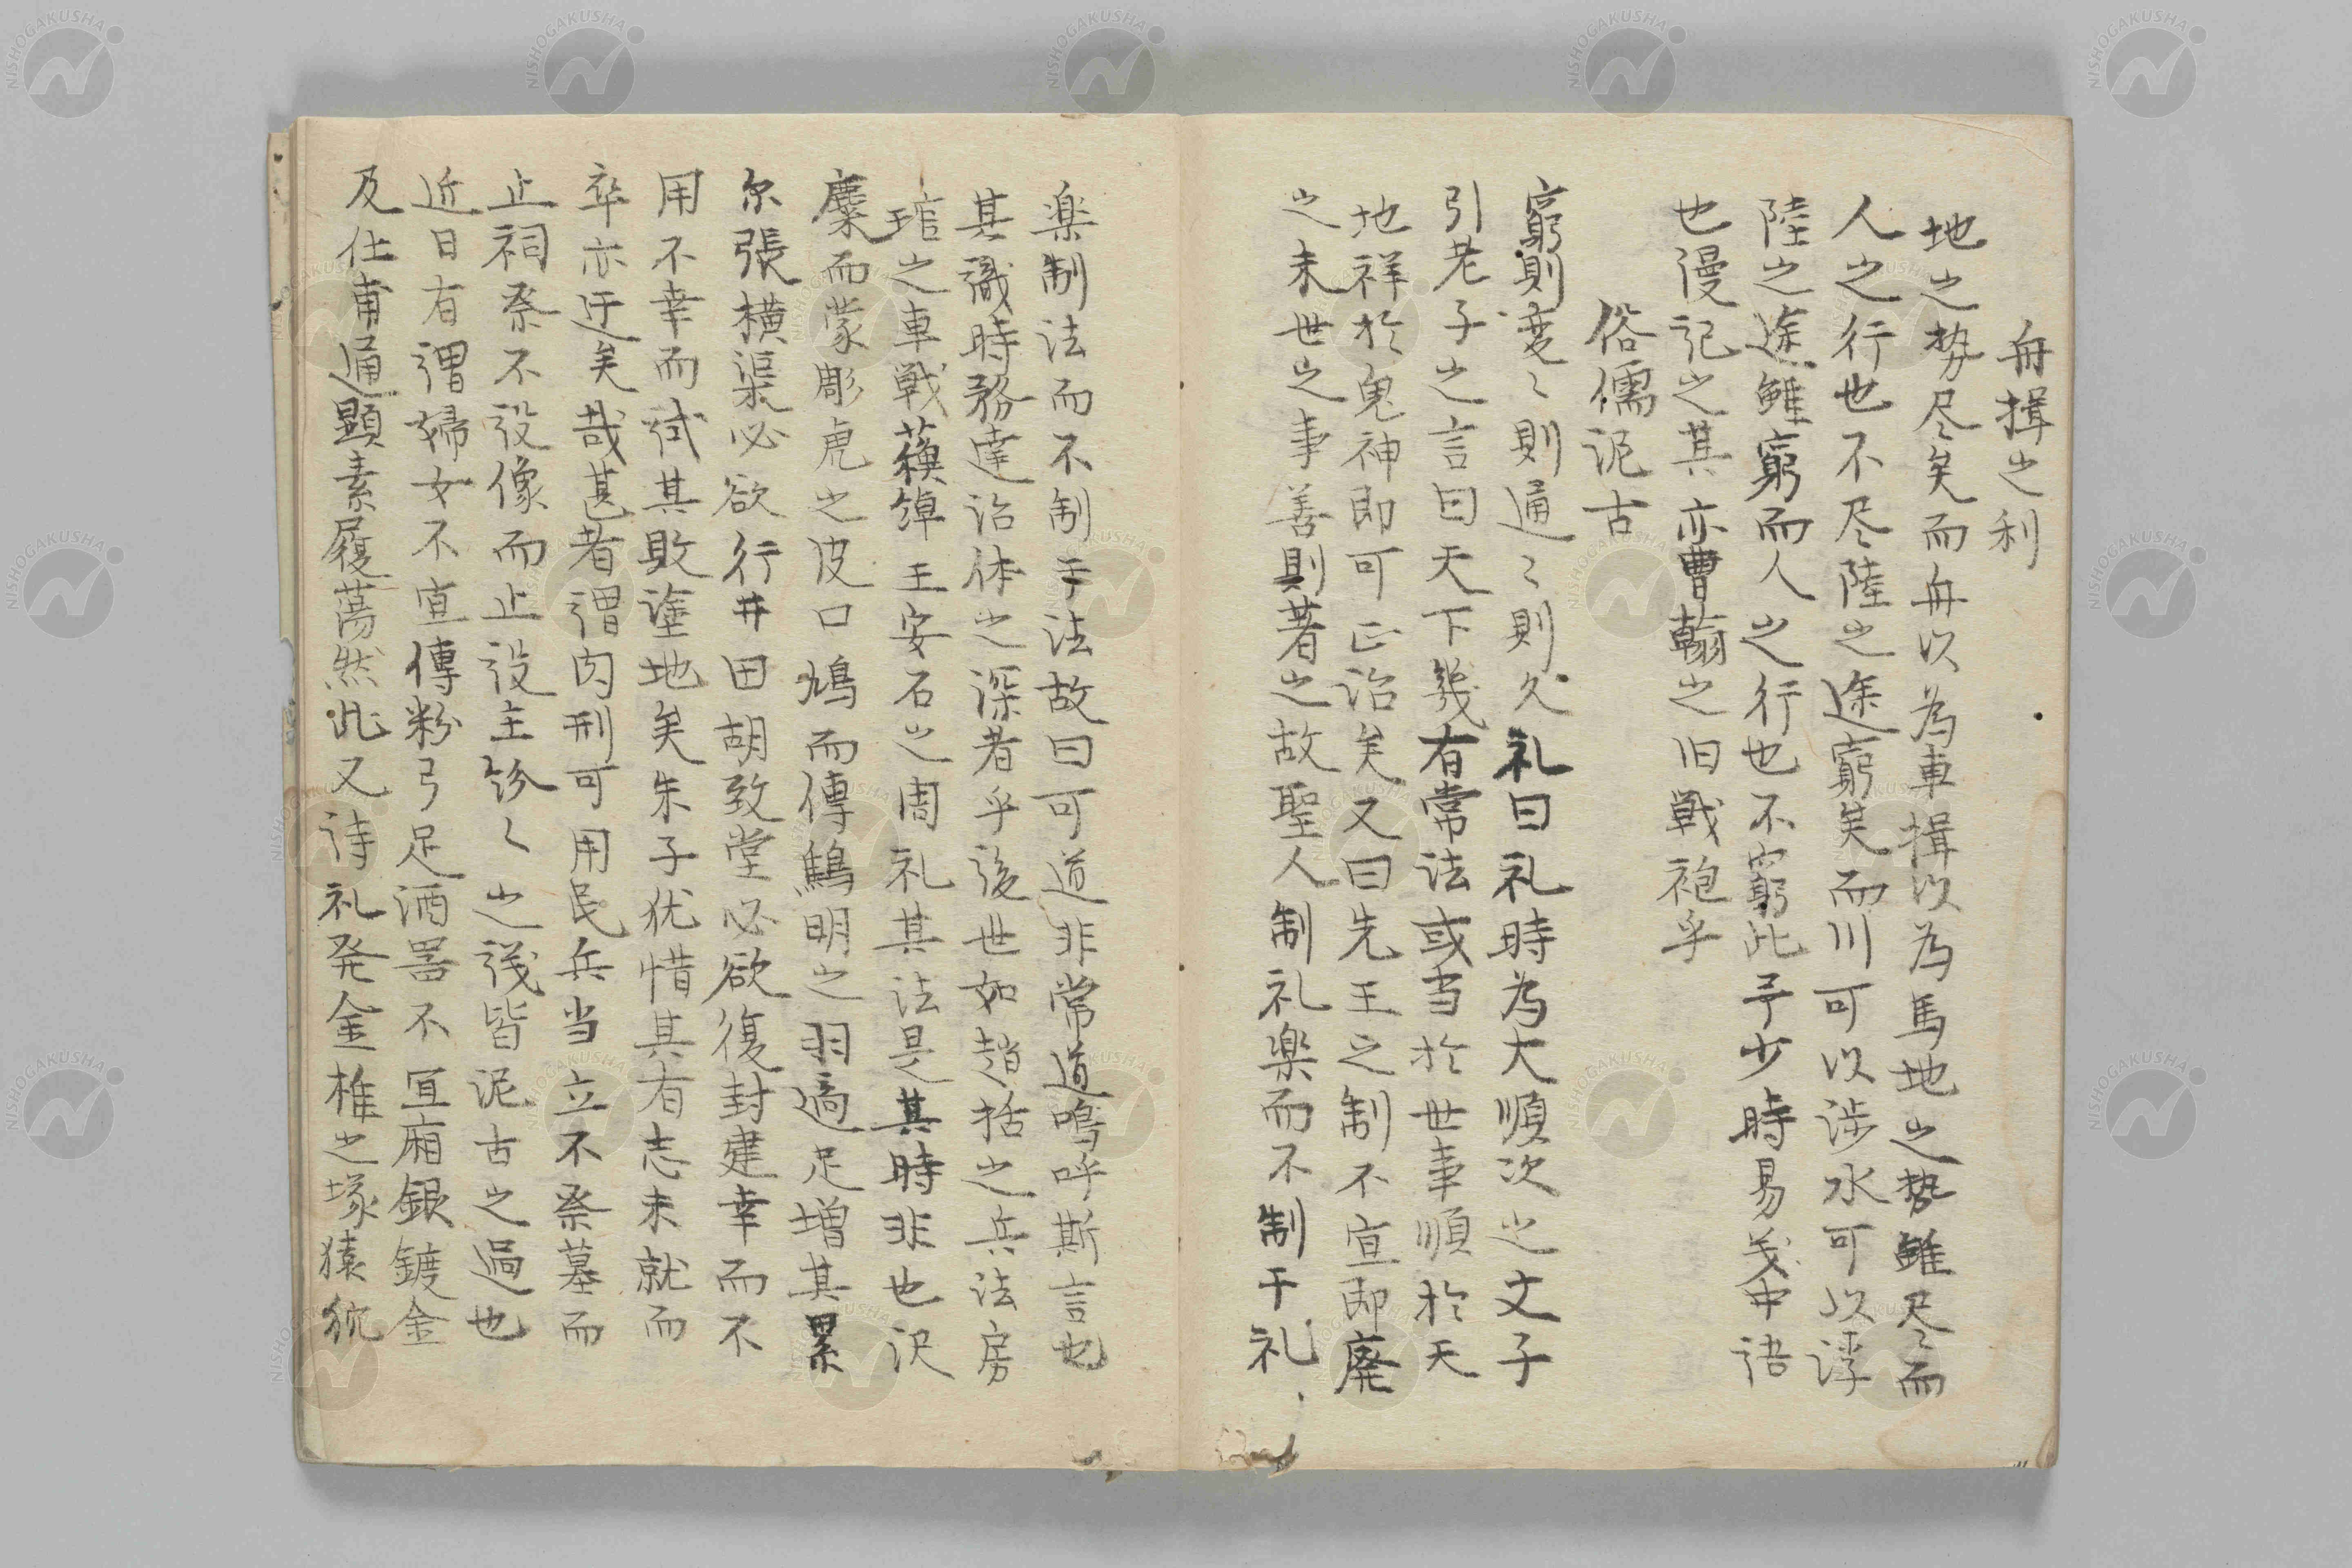 舟揖之利
地之势尽矣而舟以為車揖以為馬地之势雖尽而
人之行也不尽陸之途窮矣而川可以涉水可以浮
陸之途雖窮而人之行也不窮此予少時易義中語
也漫記之其亦曹翰之旧戦袍乎
俗儒泥古
窮則変〻則通〻則久礼曰礼時為大順次之文子
引老子之言曰天下幾有常法或当於世事順於天
地祥於鬼神即可正治矣又曰先王之制不宜即廃
之末世之事善則著之故聖人制礼楽而不制于礼
楽制法而不制于法故曰可道非常道嗚呼斯言也
其識時務達治体之深者乎後世如趙括之兵法房
琯之車戦蘓綽王安石之周礼其法是其時非也沢
麋而蒙彫虎之皮口鳩而傳鷦明之羽適足増其累
尓張横渠必欲行井田胡致堂必欲復封建幸而不
用不幸而試其敗塗地矣朱子犹惜其有志未就而
卒亦迂矣哉甚者謂肉刑可用民兵当立不祭墓而
止祠祭不設像而止設主紛〻之議皆泥古之過也
近日有謂婦女不宜傳粉弓足酒噐不宜廂銀鍍金
及仕甫通顕素履蕩然此又詩礼発金椎之塚猿狖